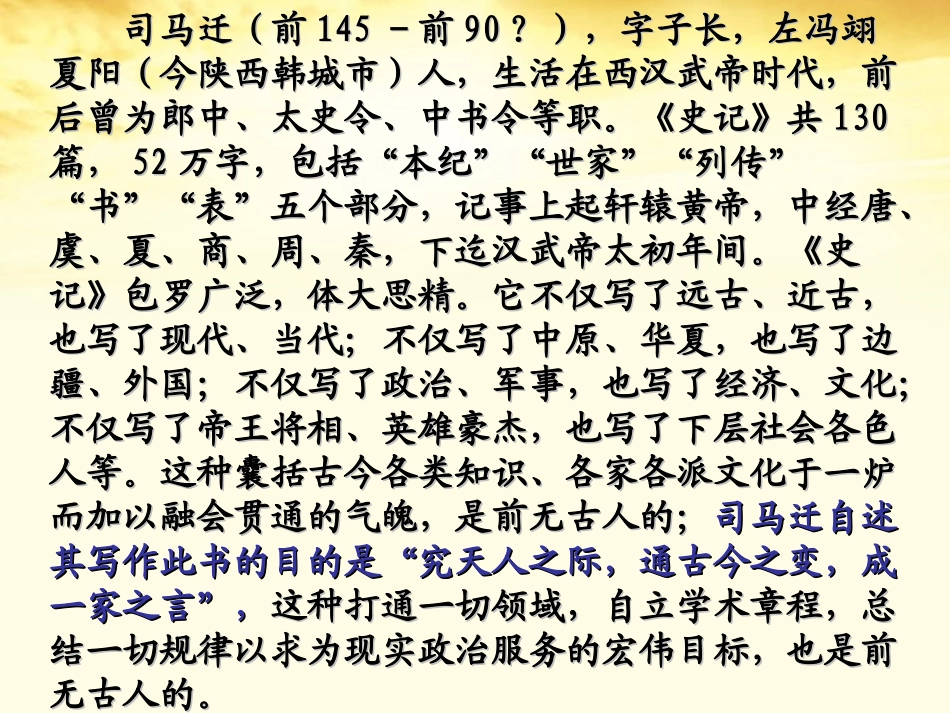 司马迁（前 145 －前 90 ？），字子长，左冯翊
夏阳（今陕西韩城市）人，生活在西汉武帝时代，前
后曾为郎中、太史令、中书令等职。《史记》共 130
篇， 52 万字，包括“本纪” “世家” “列传”
“书” “表”五个部分，记事上起轩辕黄帝，中经唐、
虞、夏、商、周、秦，下迄汉武帝太初年间。《史
记》包罗广泛，体大思精。它不仅写了远古、近古，
也写了现代、当代；不仅写了中原、华夏，也写了边
疆、外国；不仅写了政治、军事，也写了经济、文化；
不仅写了帝王将相、英雄豪杰，也写了下层社会各色
人等。这种囊括古今各类知识、各家各派文化于一炉
而加以融会贯通的气魄，是前无古人的；司马迁自述
其写作此书的目的是“究天人之际，通古今之变，成
一家之言”，这种打通一切领域，自立学术章程，总
结一切规律以求为现实政治服务的宏伟目标，也是前
无古人的。